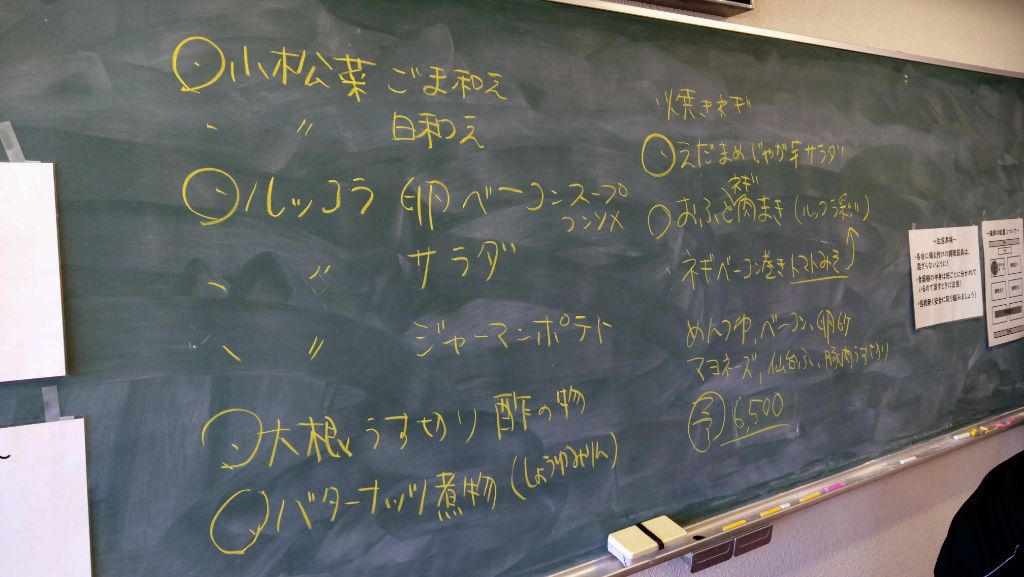 小松菜 ごま和え
〃 白和え
ルッコラ 卵ベーコンスープ
コンソメ
〃 サラダ
〃 ジャーマンポテト
大根 うす切り 酢の物
バターナッツ煮物(しょうゆみりん)
焼きネギ
えだまめじゃが芋サラダ
ネギ
おふと肉まき(ルッコラ彩り)
ネギベーコン巻きトマトみそ
めんつゆ、ベーコン、卵6ケ
マヨネーズ、仙台ふ、豚肉うすぎり
予 6,500